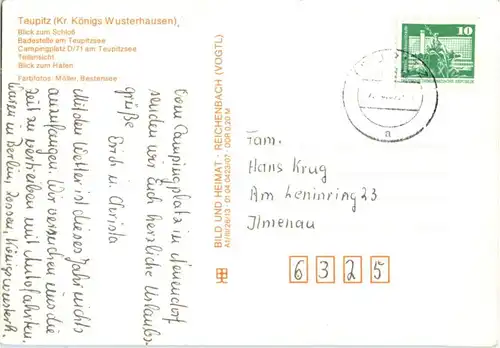 Teupitz (Kr. Königs Wusterhausen),
Blick zum Schloß
Badestelle am Teupitzsee
Campingplatz D/71 am Teupitzsee
Teilansicht
Blick zum Hafen
Farbfotos: Möller, Bestensee
Vom Campingplatz in Neuendorf
senden wir Euch herzliche Urlaubs-
grüße
Erich u. Christa
Mit den Wetter ist dieses Jahr nichts
anzufangen. Wir versuchen uns die
Zeit zu vertreiben mit Autofahrten.
Waren in Berlin, Zossen, Königswusterh.
BILD UND HEIMAT · REICHENBACH (VOGTL)
A1/III/26/13 · 01 04 0423/07 · DDR 0,20 M
10
a
Fam.
Hans Krug
Am Leninring 23
Ilmenau
6325